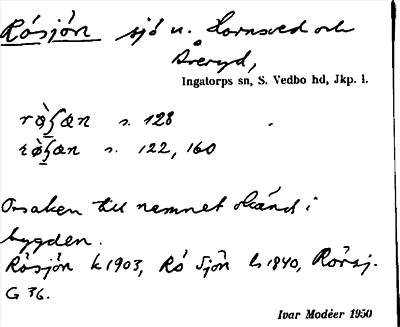 Rösjön sjö n. Hornsved och
Åreryd,
Ingatorps sn, S. Vedbo hd, Jkp. l.
s. 128
s. 122, 160
Orsaken till namnet okänd i
bygden.
Rösjön k 1903, Rö Sjön ls 1840, Rörsj.
G 36.
Ivar Modéer 1950